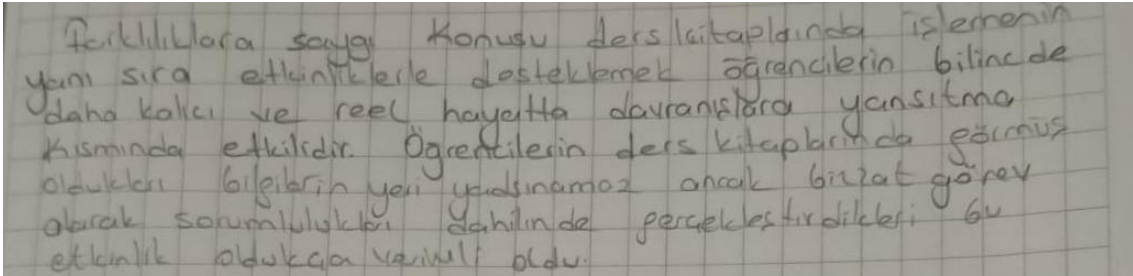 Farklılıklara saygı Konusu ders kitaplarında işlemenin
yanı sıra etkinliklerle desteklemek öğrencilerin bilincde
daha kalıcı ve reel hayatta davranışlara yansıtma
kısmında etkilidir. Öğrencilerin ders kitaplarında görmüş
oldukları bilgilerin yeri yadsınamaz ancak bizzat görev
alarak sorumlulukları dahilinde gerçekleştirdikleri bu
etkinlik oldukça verimli oldu.